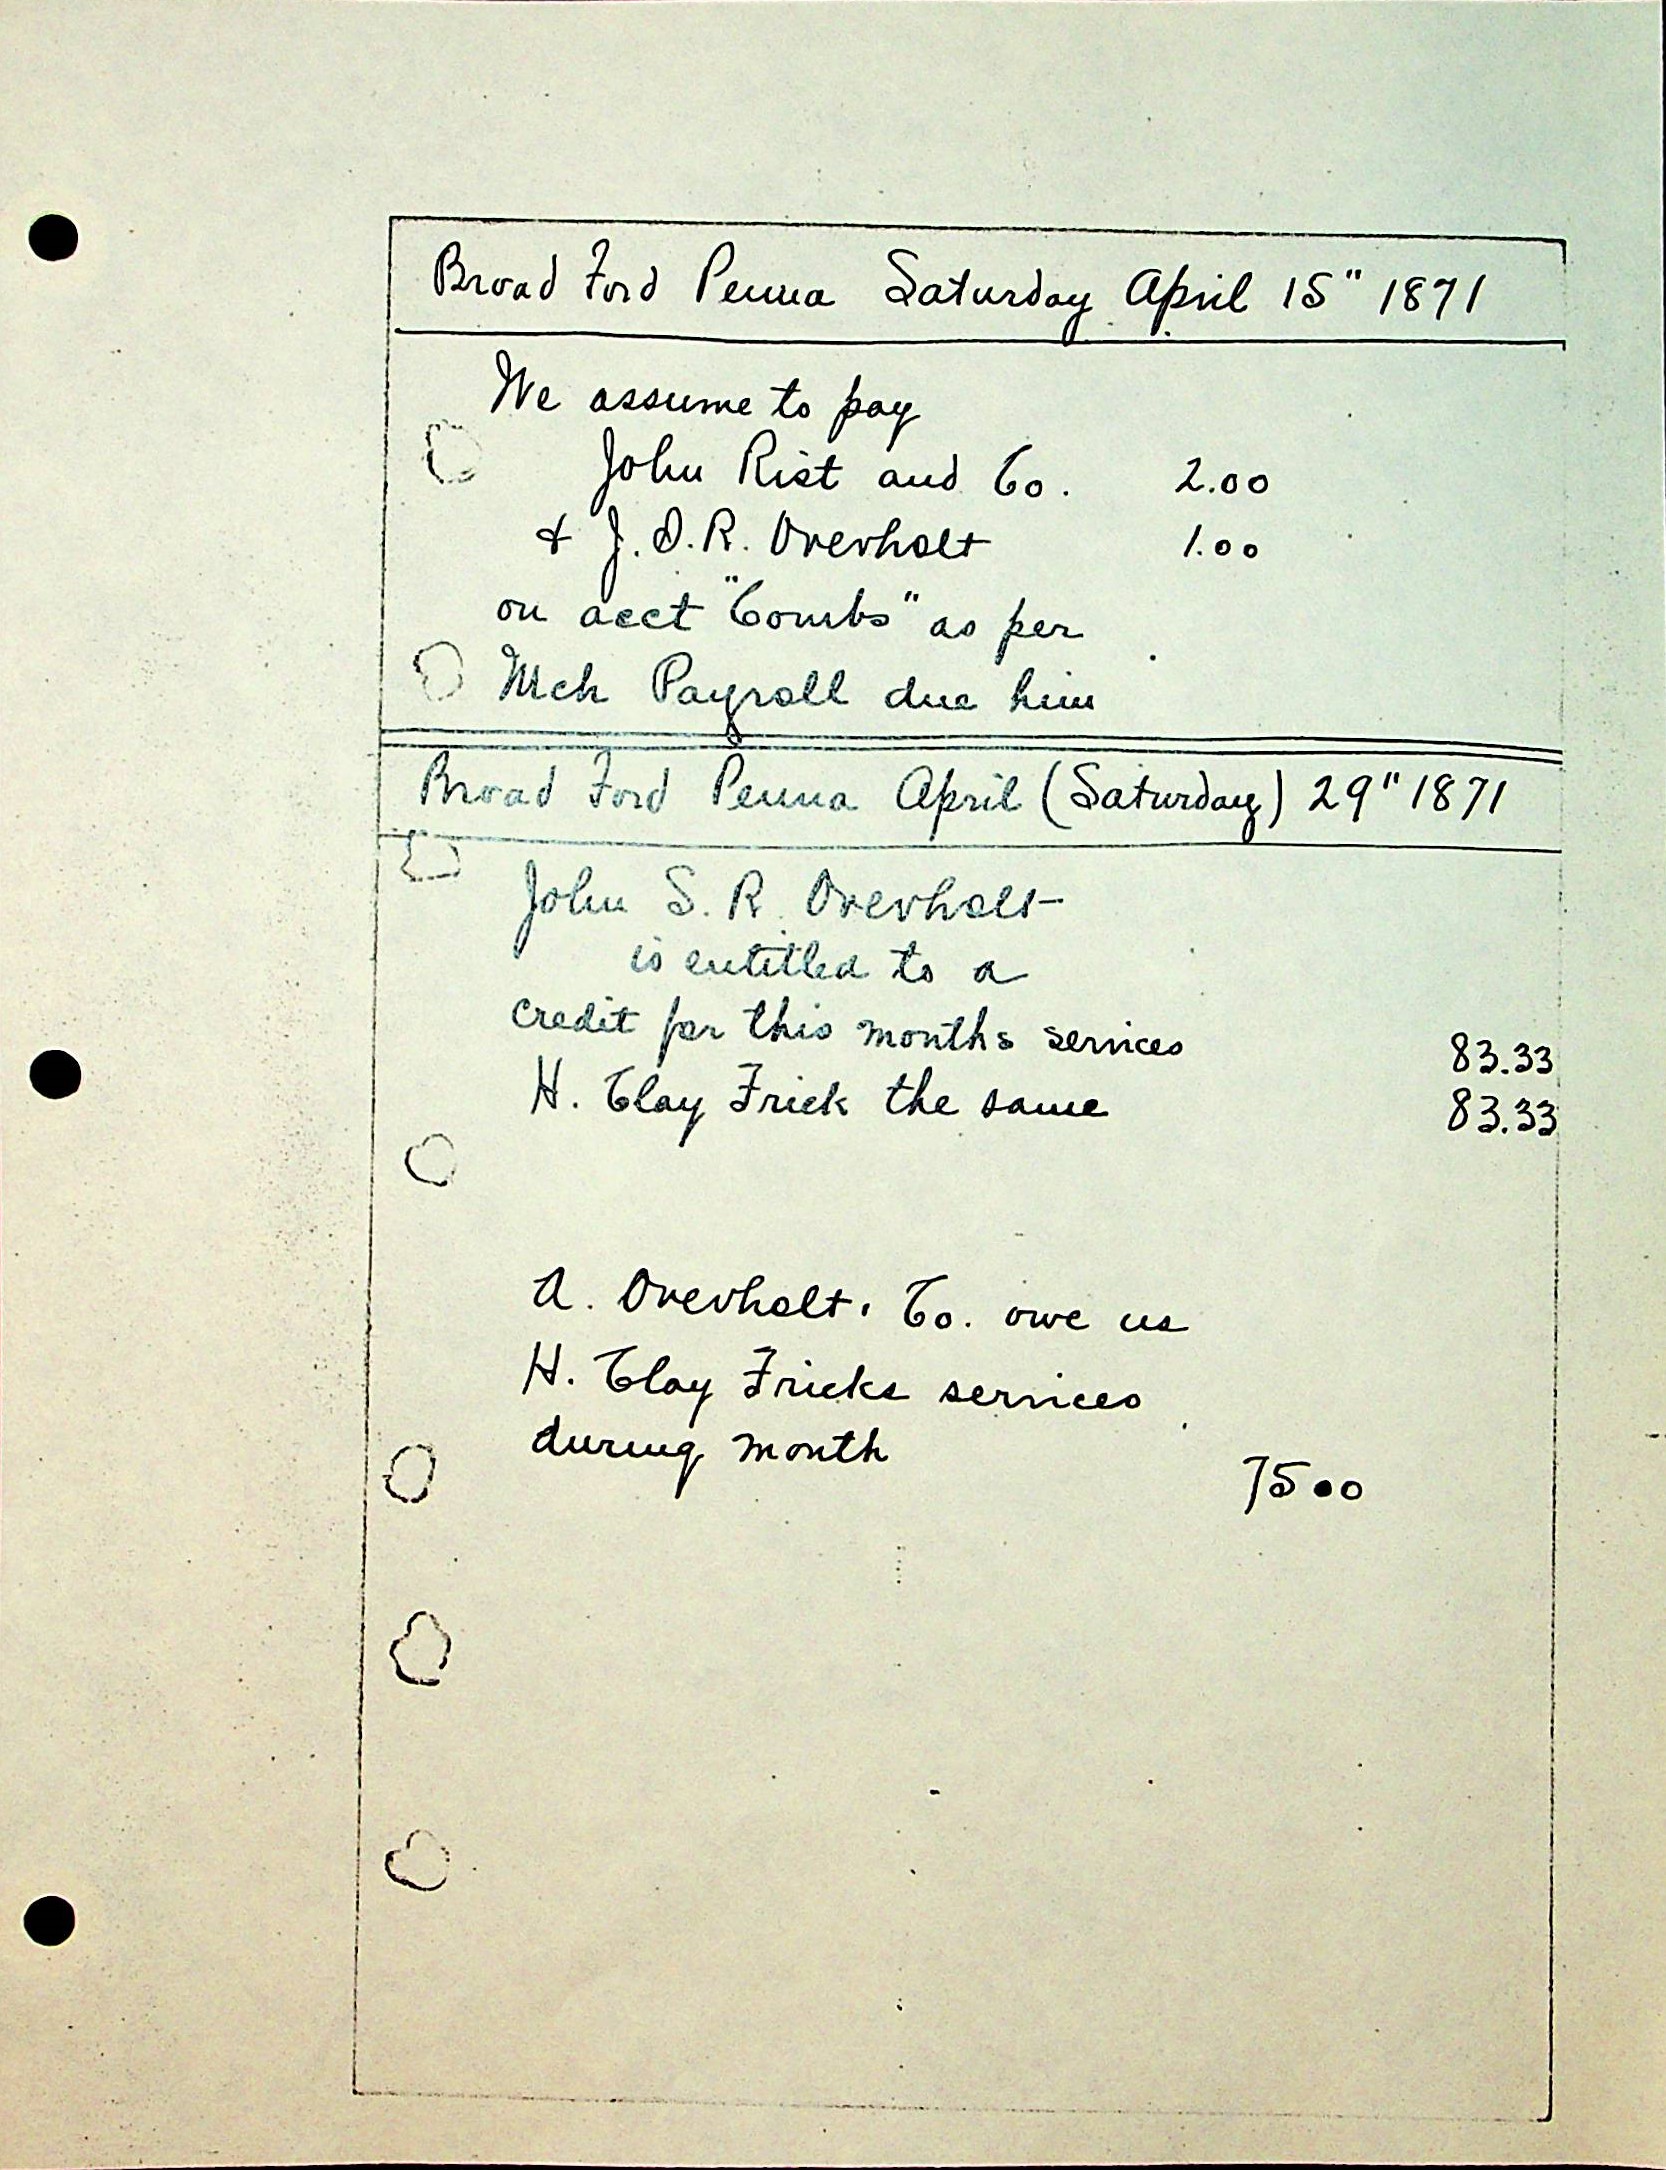 Broad Ford Penna Saturday April 15" 1871
We assume to pay
John Rist and Co. 2.00
& J.O.R. Overholt 1.00
on acct "Combs" as per
Mch Payroll due him
Broad Ford Penna April (Saturday) 29" 1871
John S. R. Overholt
is entitled to a
credit for this months services 83.33
H. Clay Frick the same 83.33
A. Overholt. Co. owe us
H. Clay Fricks services
during month 75 00